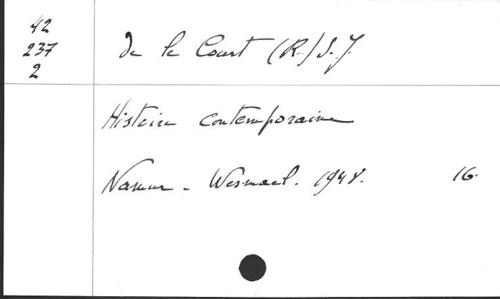 42
237
2
de le Court (R.) S.J.
Histoire contemporaine
Namur - Wesmael. 1948. 16.